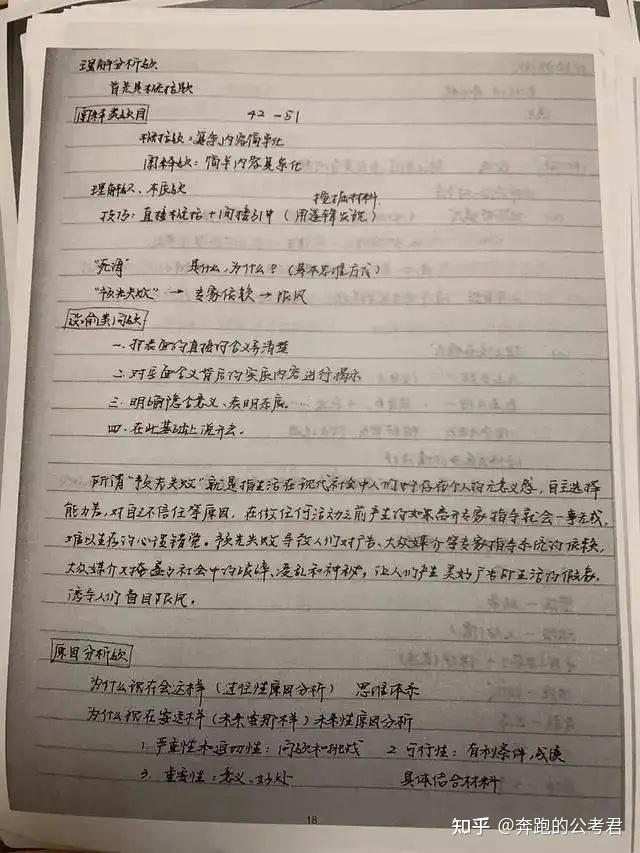 理解分析题
首先是概括题
阐释类题目 42-51
概括题：复杂内容简单化
阐释题：简单内容复杂化
理解题、本质题 挖掘材料
技巧：直接概括+间接引申（用逻辑发现）
"所谓" 是什么，为什么？（基本思维方式）
"预先失败"→专家依赖→跟风
谈谕类问题
一、将表面的直接的含义弄清楚
二、对字面含义背后的实质内容进行揭示
三、明确隐含意义、表明态度。
四、在此基础上说开去。
所谓"预先失败"就是指生活在现代社会中人们时存在个人的无意义感，自主选择
能力差，对自己不信任等原因，在做任何活动之前产生的如果离开专家指导就会一事无成，
难以生存的心理错觉。预先失败导致人们对广告、大众媒介等专家指导系统的依赖，
大众媒介又掩盖了社会中的破碎、凌乱和神秘，让人们产生美好广告即生活的假象，
诱导人们盲目跟风。
原因分析题
为什么现在会这样（过往性原因分析） 思维体系
为什么现在要这样（未来要那样）未来性原因分析
1. 严重性和迫切性：问题和挑战 2 可行性：有利条件，成绩
3. 重要性：意义、好处 具体结合材料
18
知乎 @奔跑的公考君